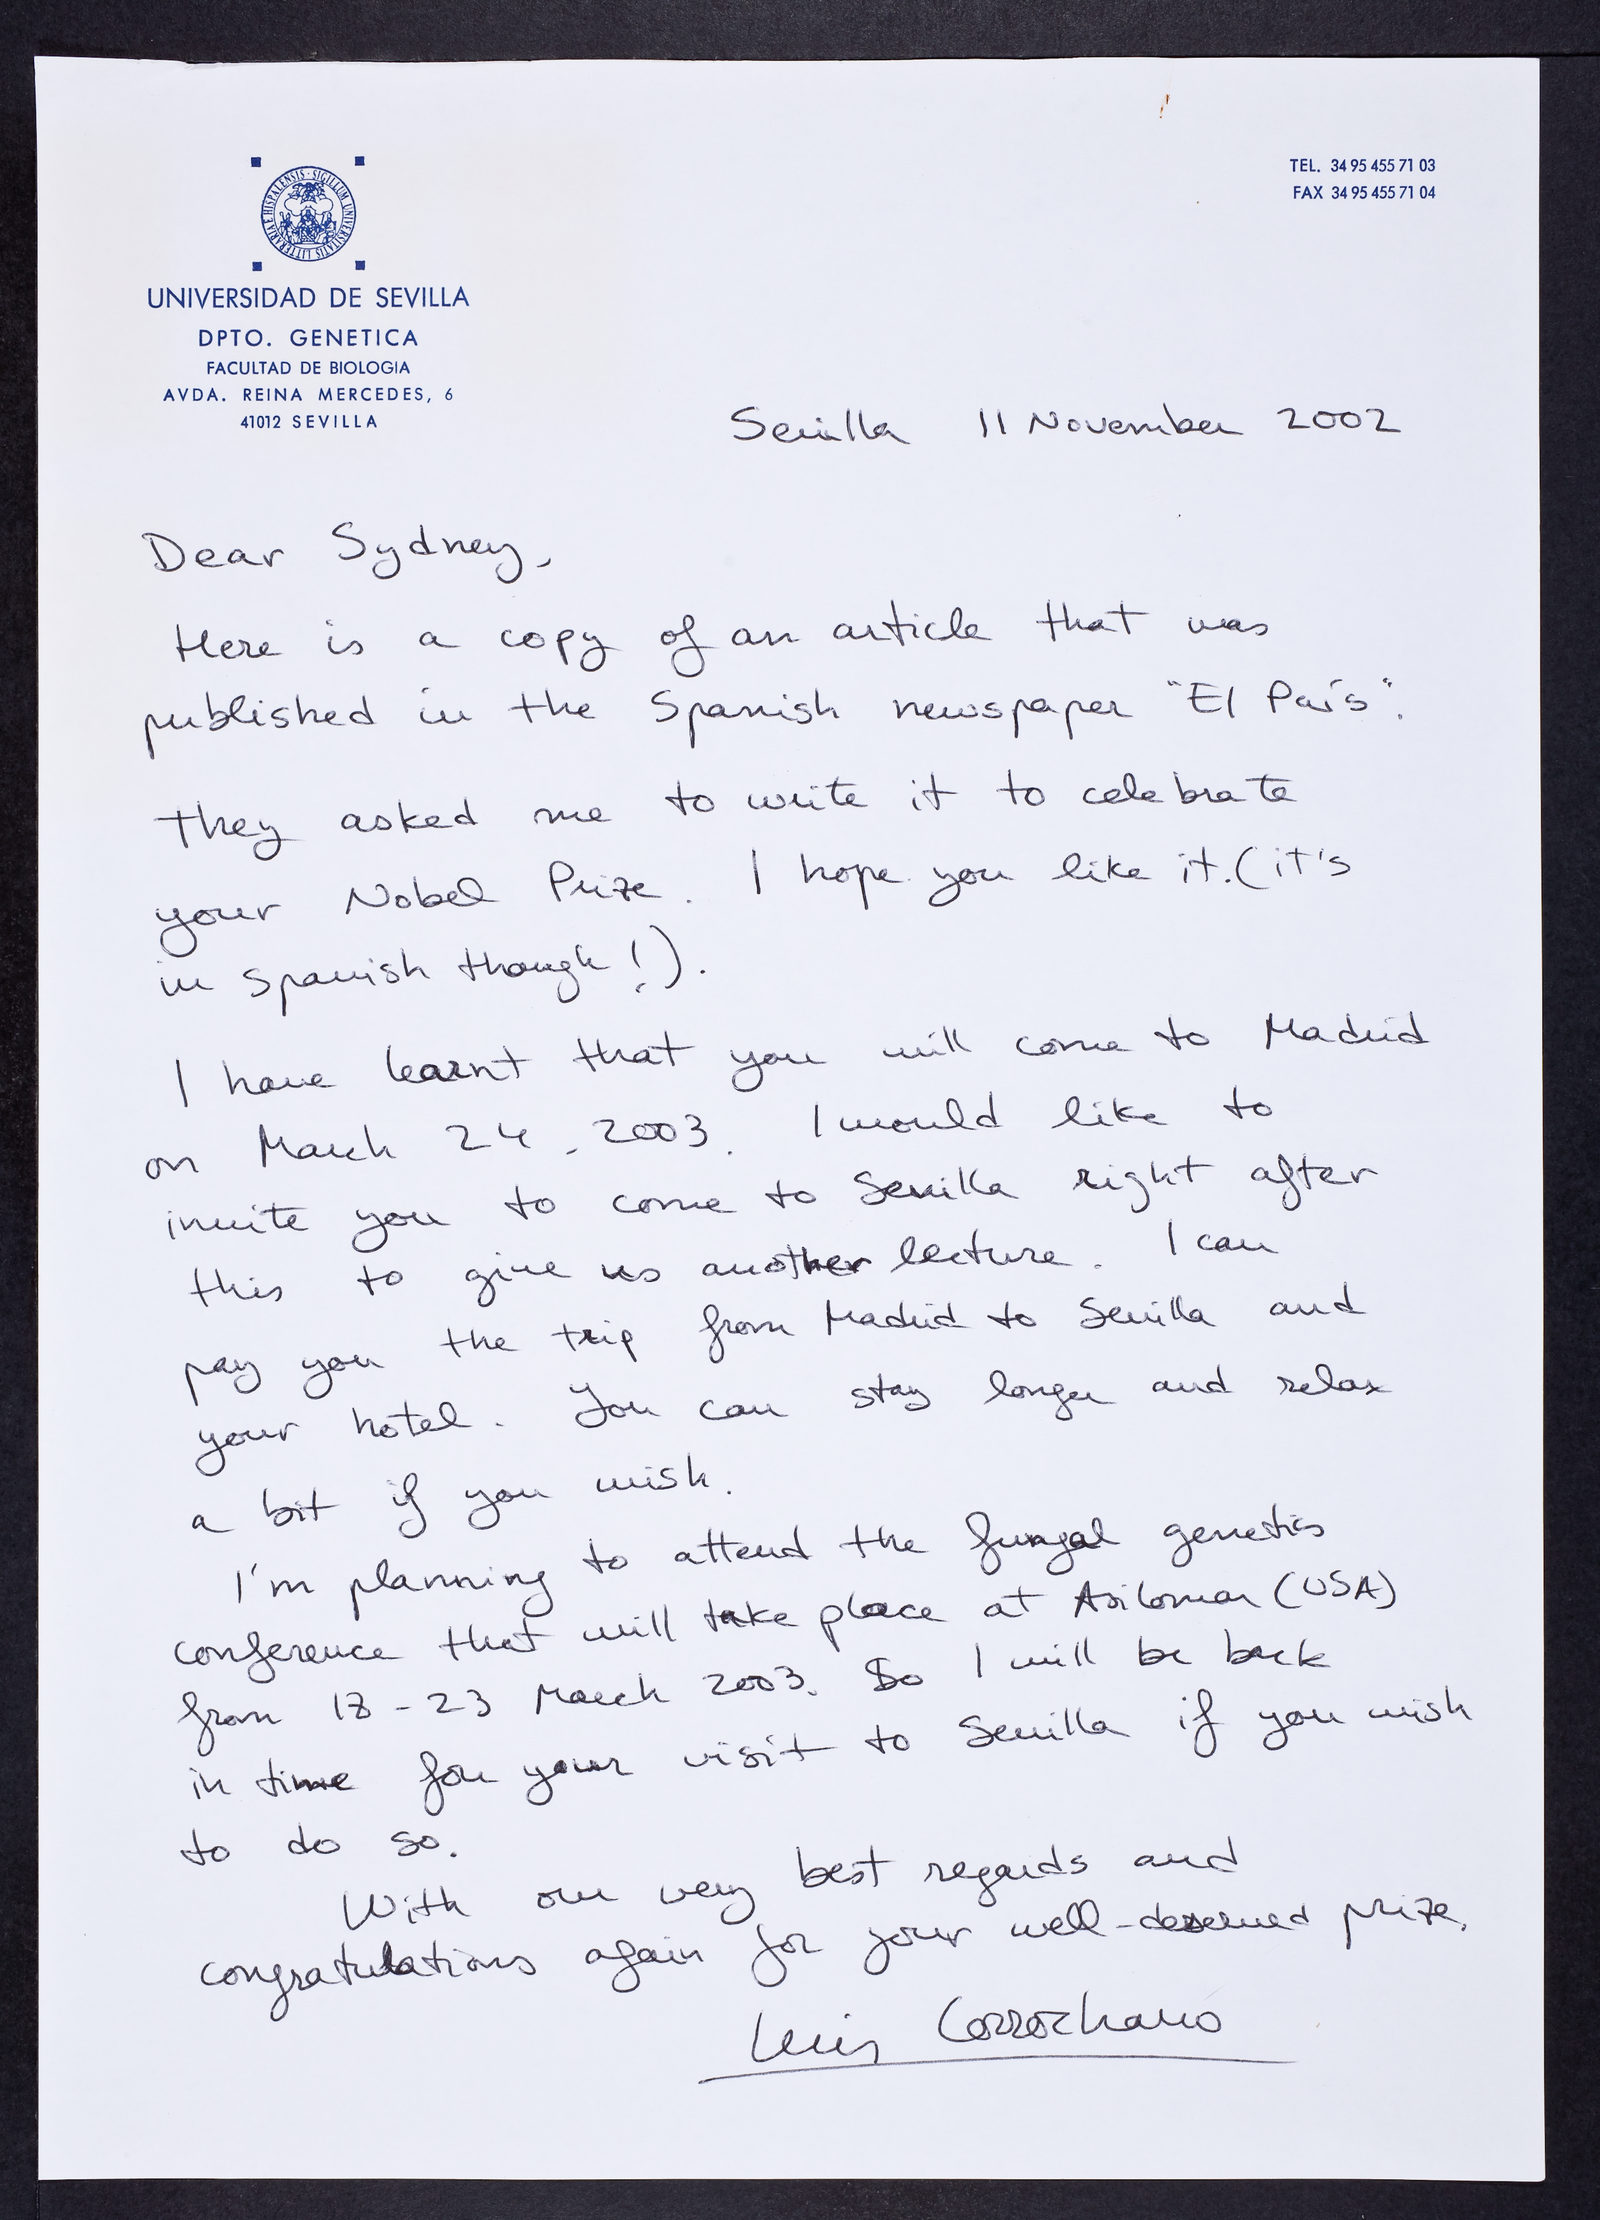 SIGILLUM UNIVERSITATIS LITTERARIAE HISPALENSIS
TEL. 34 95 455 71 03
FAX 34 95 455 71 04
UNIVERSIDAD DE SEVILLA
DPTO. GENETICA
FACULTAD DE BIOLOGIA
AVDA. REINA MERCEDES, 6
41012 SEVILLA
Sevilla 11 November 2002
Dear Sydney,
Here is a copy of an article that was
published in the Spanish newspaper "El País".
They asked me to write it to celebrate
your Nobel Prize. I hope you like it. (it's
in spanish though!).
I have learnt that you will come to Madrid
on March 24, 2003. I would like to
invite you to come to Sevilla right after
this to give us another lecture. I can
pay you the trip from Madrid to Sevilla and
your hotel. You can stay longer and relax
a bit if you wish.
I'm planning to attend the fungal genetics
conference that will take place at Asilomar (USA)
from 18-23 March 2003. So I will be back
in time for your visit to Sevilla if you wish
to do so.
With our very best regards and
congratulations again for your well-deserved prize,
Luis Corrochano